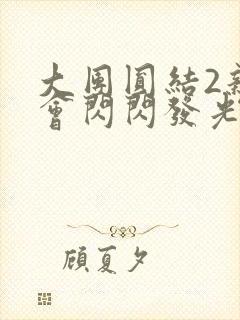 大團圓結2新
會閃閃發光
顧夏夕